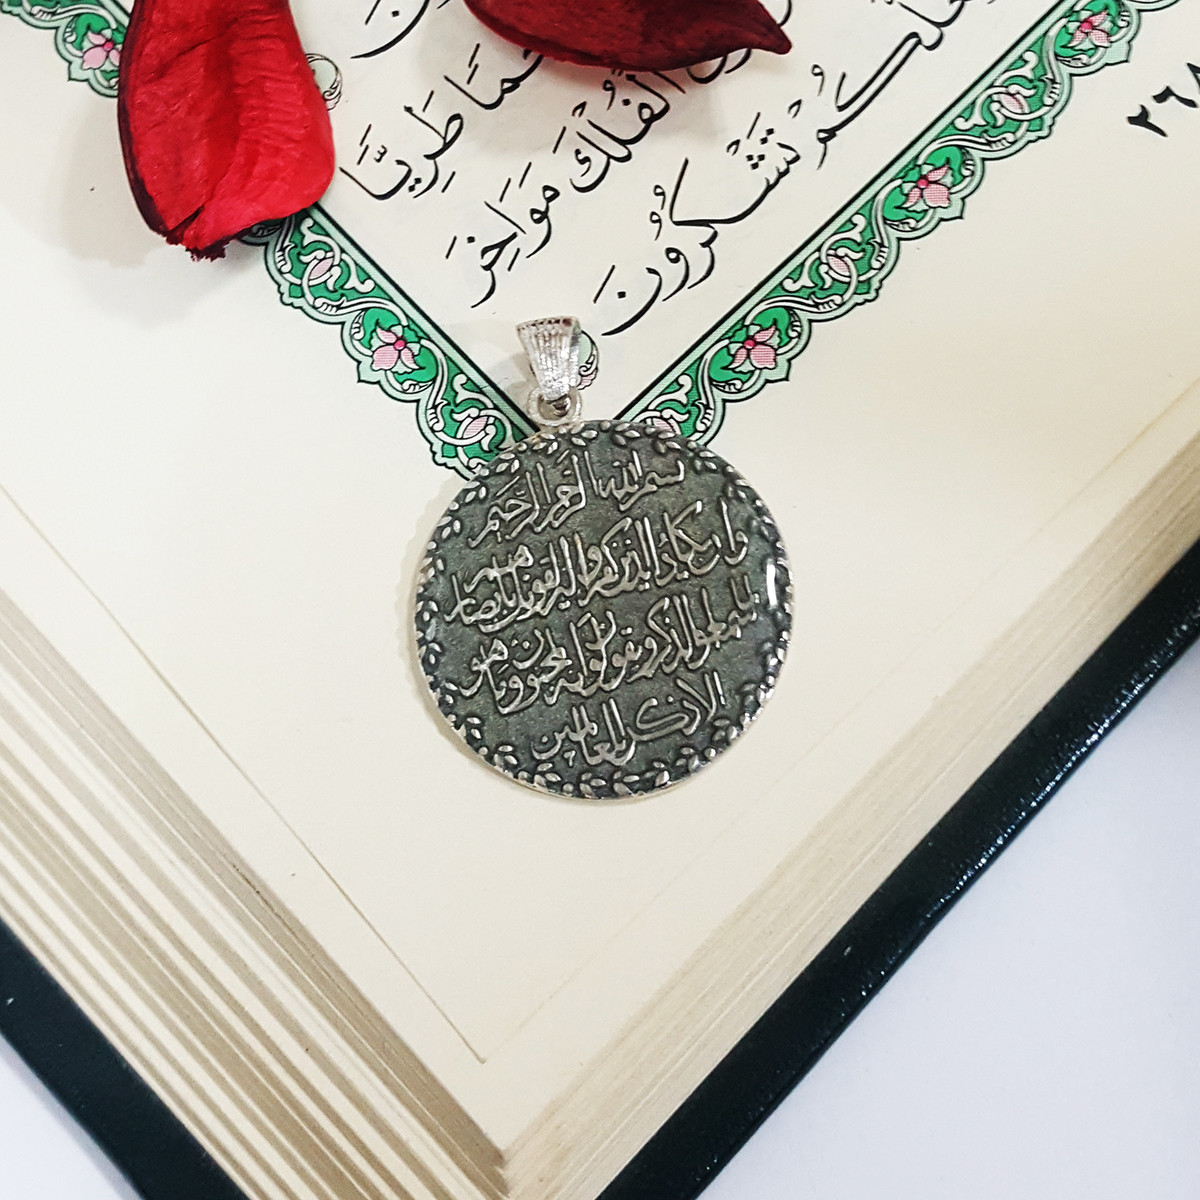 حْمًا طَرِيًّا
الْفُلْكَ مَوَاخِرَ
لَعَلَّكُمْ تَشْكُرُونَ
٢٦٨
بسم الله الرحمن الرحيم
وان يكاد الذين كفروا ليزلقونك بابصارهم
لما سمعوا الذكر ويقولون انه لمجنون وما هو
الا ذكر للعالمين